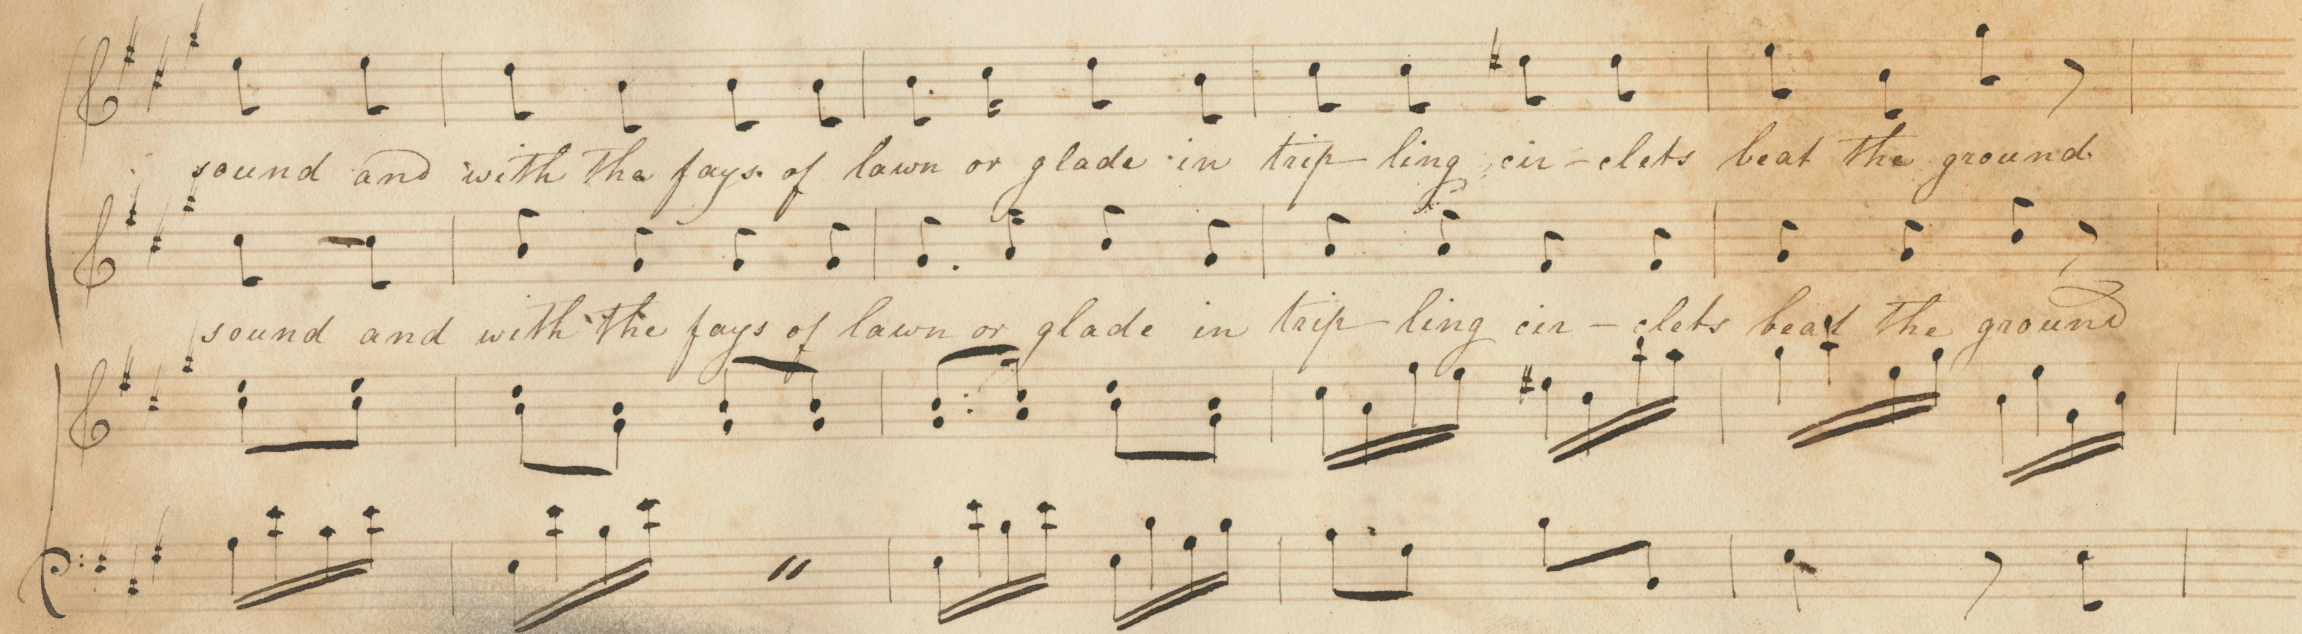 sound and with the fays of lawn or glade in trip-ling cir-clets beat the ground
sound and with the fays of lawn or glade in trip-ling cir-clets beat the ground